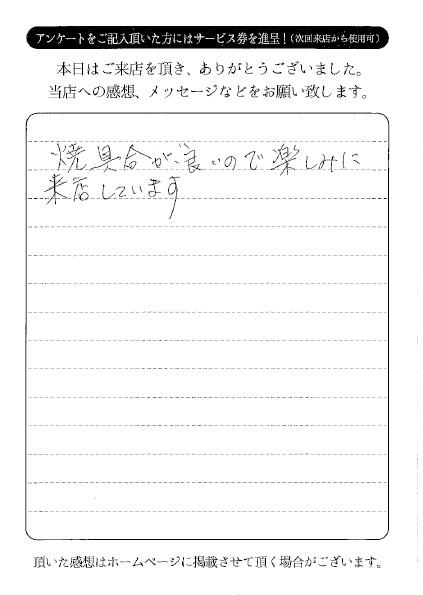 アンケートをご記入頂いた方にはサービス券を進呈!(次回来店から使用可)
本日はご来店を頂き、ありがとうございました。
当店への感想、メッセージなどをお願い致します。
焼具合が良いので楽しみに
来店しています
頂いた感想はホームページに掲載させて頂く場合がございます。